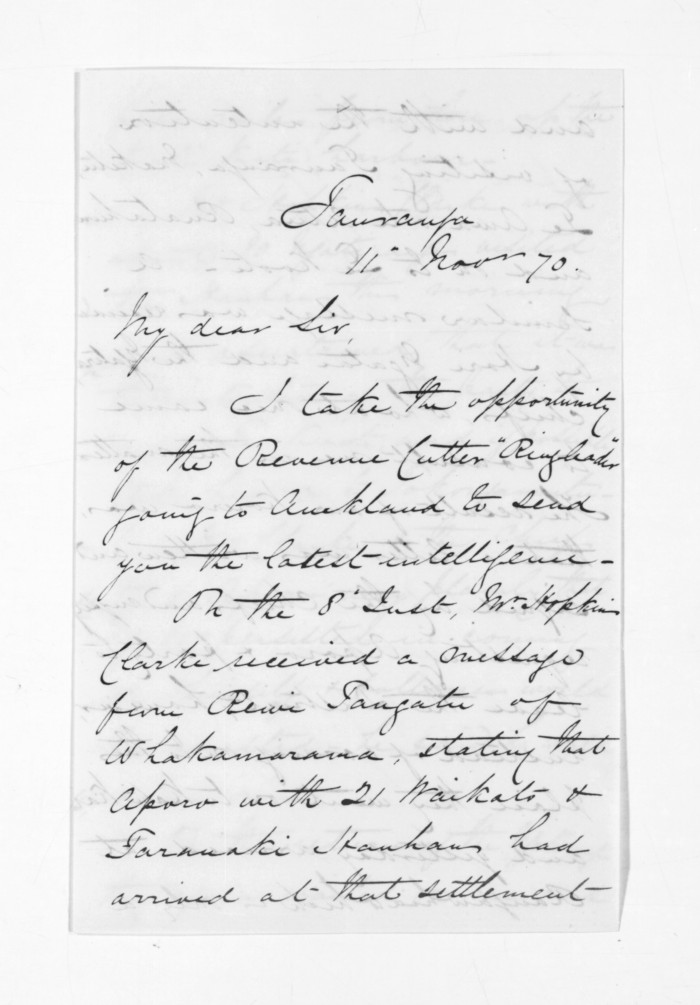 Tauranga
11" Novr 70.
My dear Sir,
I take the opportunity
of the Revenue Cutter "Ringleader"
going to Auckland to send
you the latest intelligence -
On the 8" Inst, Mr. Hopkins
Clarke received a message
from Rewi Tangatu of
Whakamarama, stating that
Aporo with 21 Waikato &
Taranaki Hauhaus had
arrived at that settlement